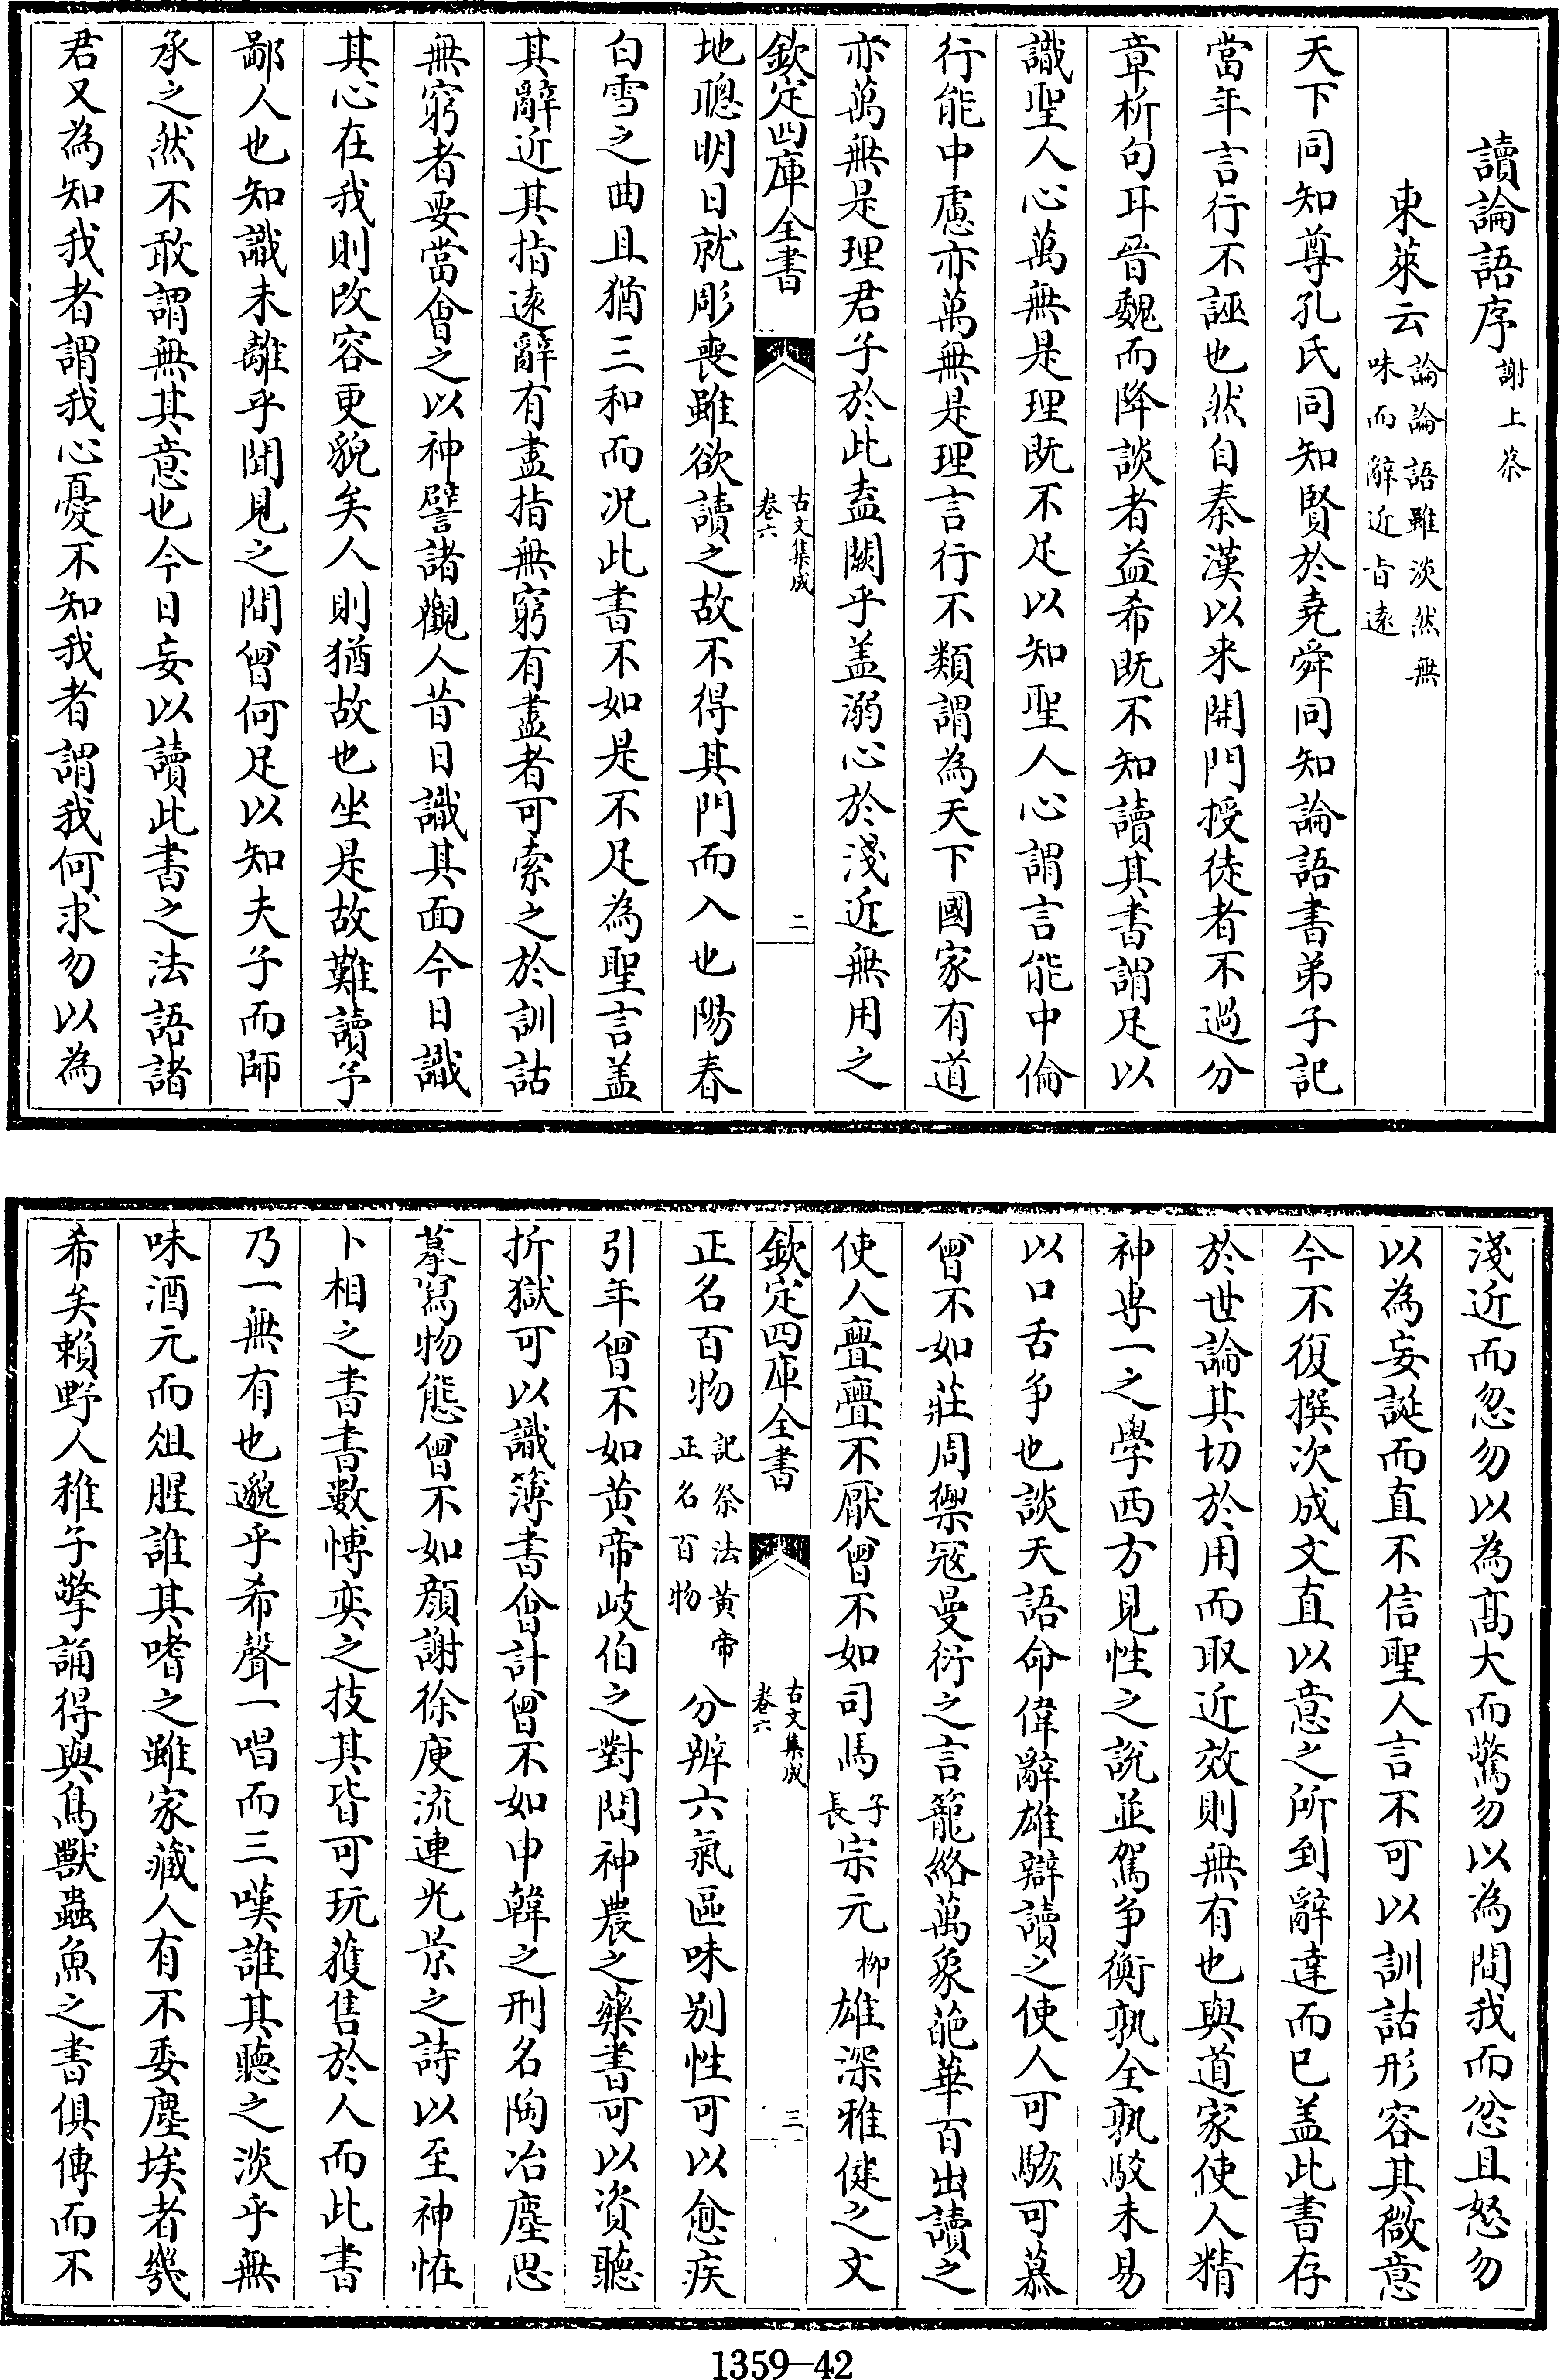 讀論語序謝上蔡
東萊云論論語雖淡然無味而辭近旨遠
天下同知尊孔氏同知賢於堯舜同知論語書弟子記
當年言行不誣也然自秦漢以来開門授徒者不過分
章析句耳晉魏而降談者益希既不知讀其書謂足以
識聖人心萬無是理既不足以知聖人心謂言能中倫
行能中慮亦萬無是理言行不類謂為天下國家有道
亦萬無是理君子於此盍闕乎盖溺心於淺近無用之
欽定四庫全書
古文集成
卷六
二
地聰明日就彫喪雖欲讀之故不得其門而入也陽春
白雪之曲且猶三和而况此書不如是不足為聖言盖
其辭近其指遠辭有盡指無窮有盡者可索之於訓詁
無窮者要當會之以神譬諸觀人昔日識其面今日識
其心在我則改容更貌矣人則猶故也坐是故難讀予
鄙人也知識未離乎聞見之間曾何足以知夫子而師
承之然不敢謂無其意也今日妄以讀此書之法語諸
君又為知我者謂我心憂不知我者謂我何求勿以為
淺近而忽勿以為髙大而驚勿以為間我而忿且怒勿
以為妄誕而直不信聖人言不可以訓詁形容其微意
今不復撰次成文直以意之所到辭達而已盖此書存
於世論其切於用而取近效則無有也與道家使人精
神専一之學西方見性之說並駕争衡孰全孰駮未易
以口舌争也談天語命偉辭雄辯讀之使人可駭可慕
曾不如莊周禦冦曼衍之言籠絡萬象葩華百出讀之
使人亹亹不厭曾不如司馬子長宗元柳雄深雅健之文
欽定四庫全書
古文集成
卷六
三
正名百物記祭法黄帝正名百物分辨六氣區味别性可以愈疾
引年曾不如黄帝岐伯之對問神農之藥書可以資聽
折獄可以識簿書㑹計曾不如申韓之刑名陶冶塵思
摹寫物態曾不如顔謝徐庾流連光景之詩以至神怪
卜相之書書數博奕之技其皆可玩獲售於人而此書
乃一無有也邈乎希聲一唱而三嘆誰其聽之淡乎無
味酒元而俎腥誰其嗜之雖家藏人有不委塵埃者幾
希矣賴野人稚子擎誦得與鳥獸蟲魚之書俱傳而不
1359—42